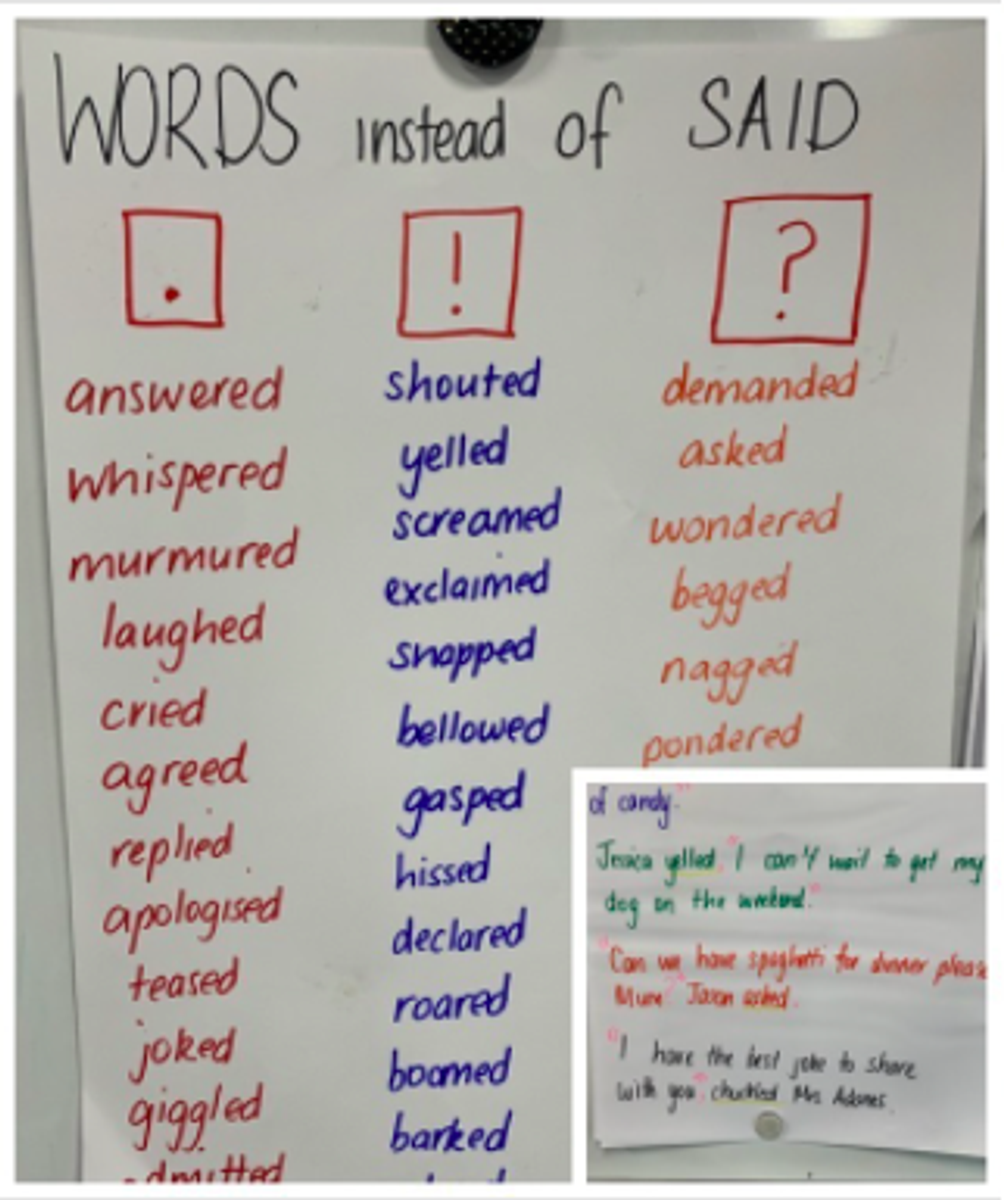 WORDS instead of SAID
. ! ?
answered
whispered
murmured
laughed
cried
agreed
replied
apologised
teased
joked
giggled
admitted
shouted
yelled
screamed
exclaimed
snapped
bellowed
gasped
hissed
declared
roared
boomed
barked
demanded
asked
wondered
begged
nagged
pondered
of candy."
Jessica yelled, "I can't wait to get my
dog on the weekend."
"Can we have spaghetti for dinner please
Mum?" Jason asked.
"I have the best joke to share
with you," chuckled Mrs Adams.